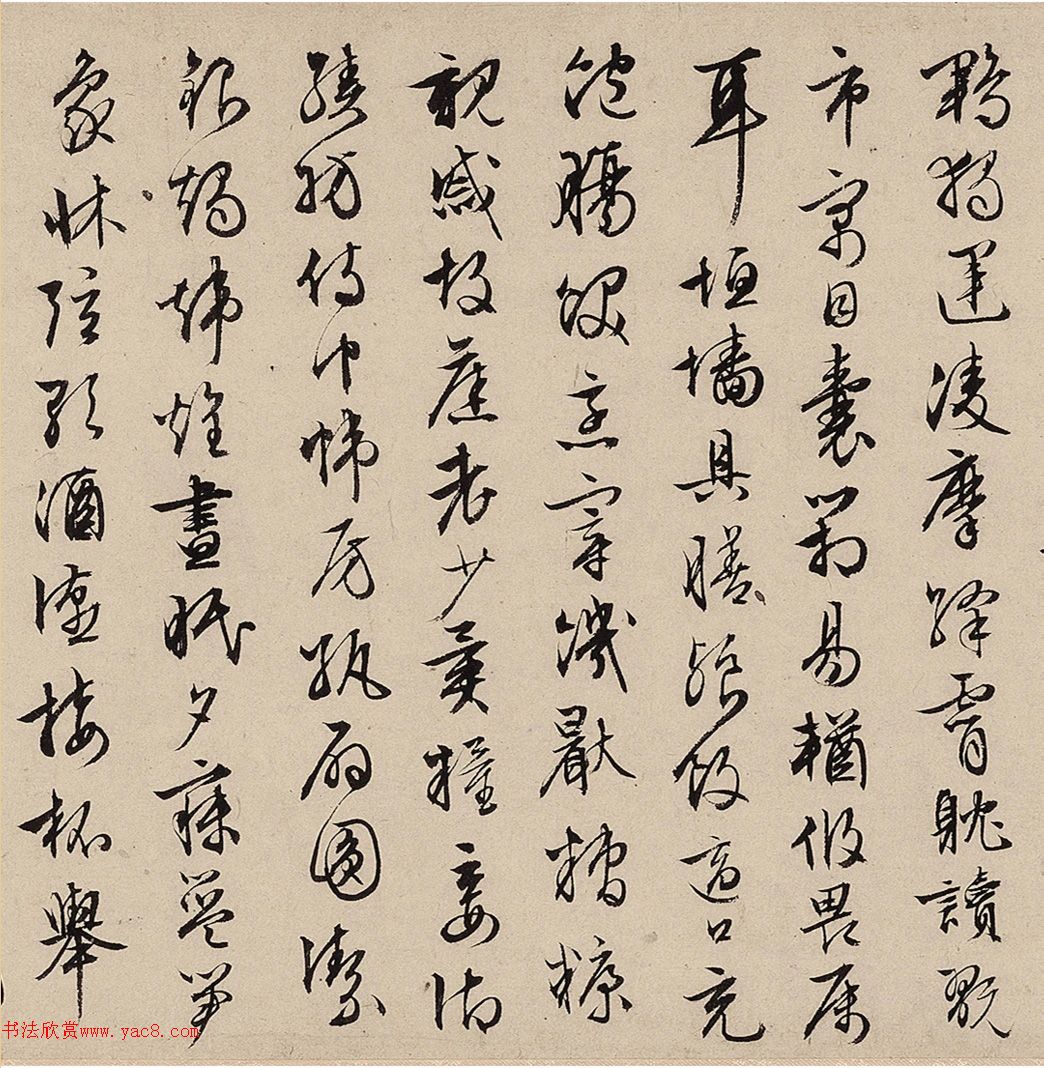 鵾獨運凌摩絳霄躭讀翫
市寓目囊箱易輶攸畏属
耳垣墙具膳飡飯適口充
飽腸飫烹宰饑猒糟糠
親戚故舊老少異糧妾御
績紡侍巾帷房紈扇圓潔
銀燭煒煌晝眠夕寐藍笋
象牀弦歌酒讌接杯舉
书法欣赏www.yac8.com